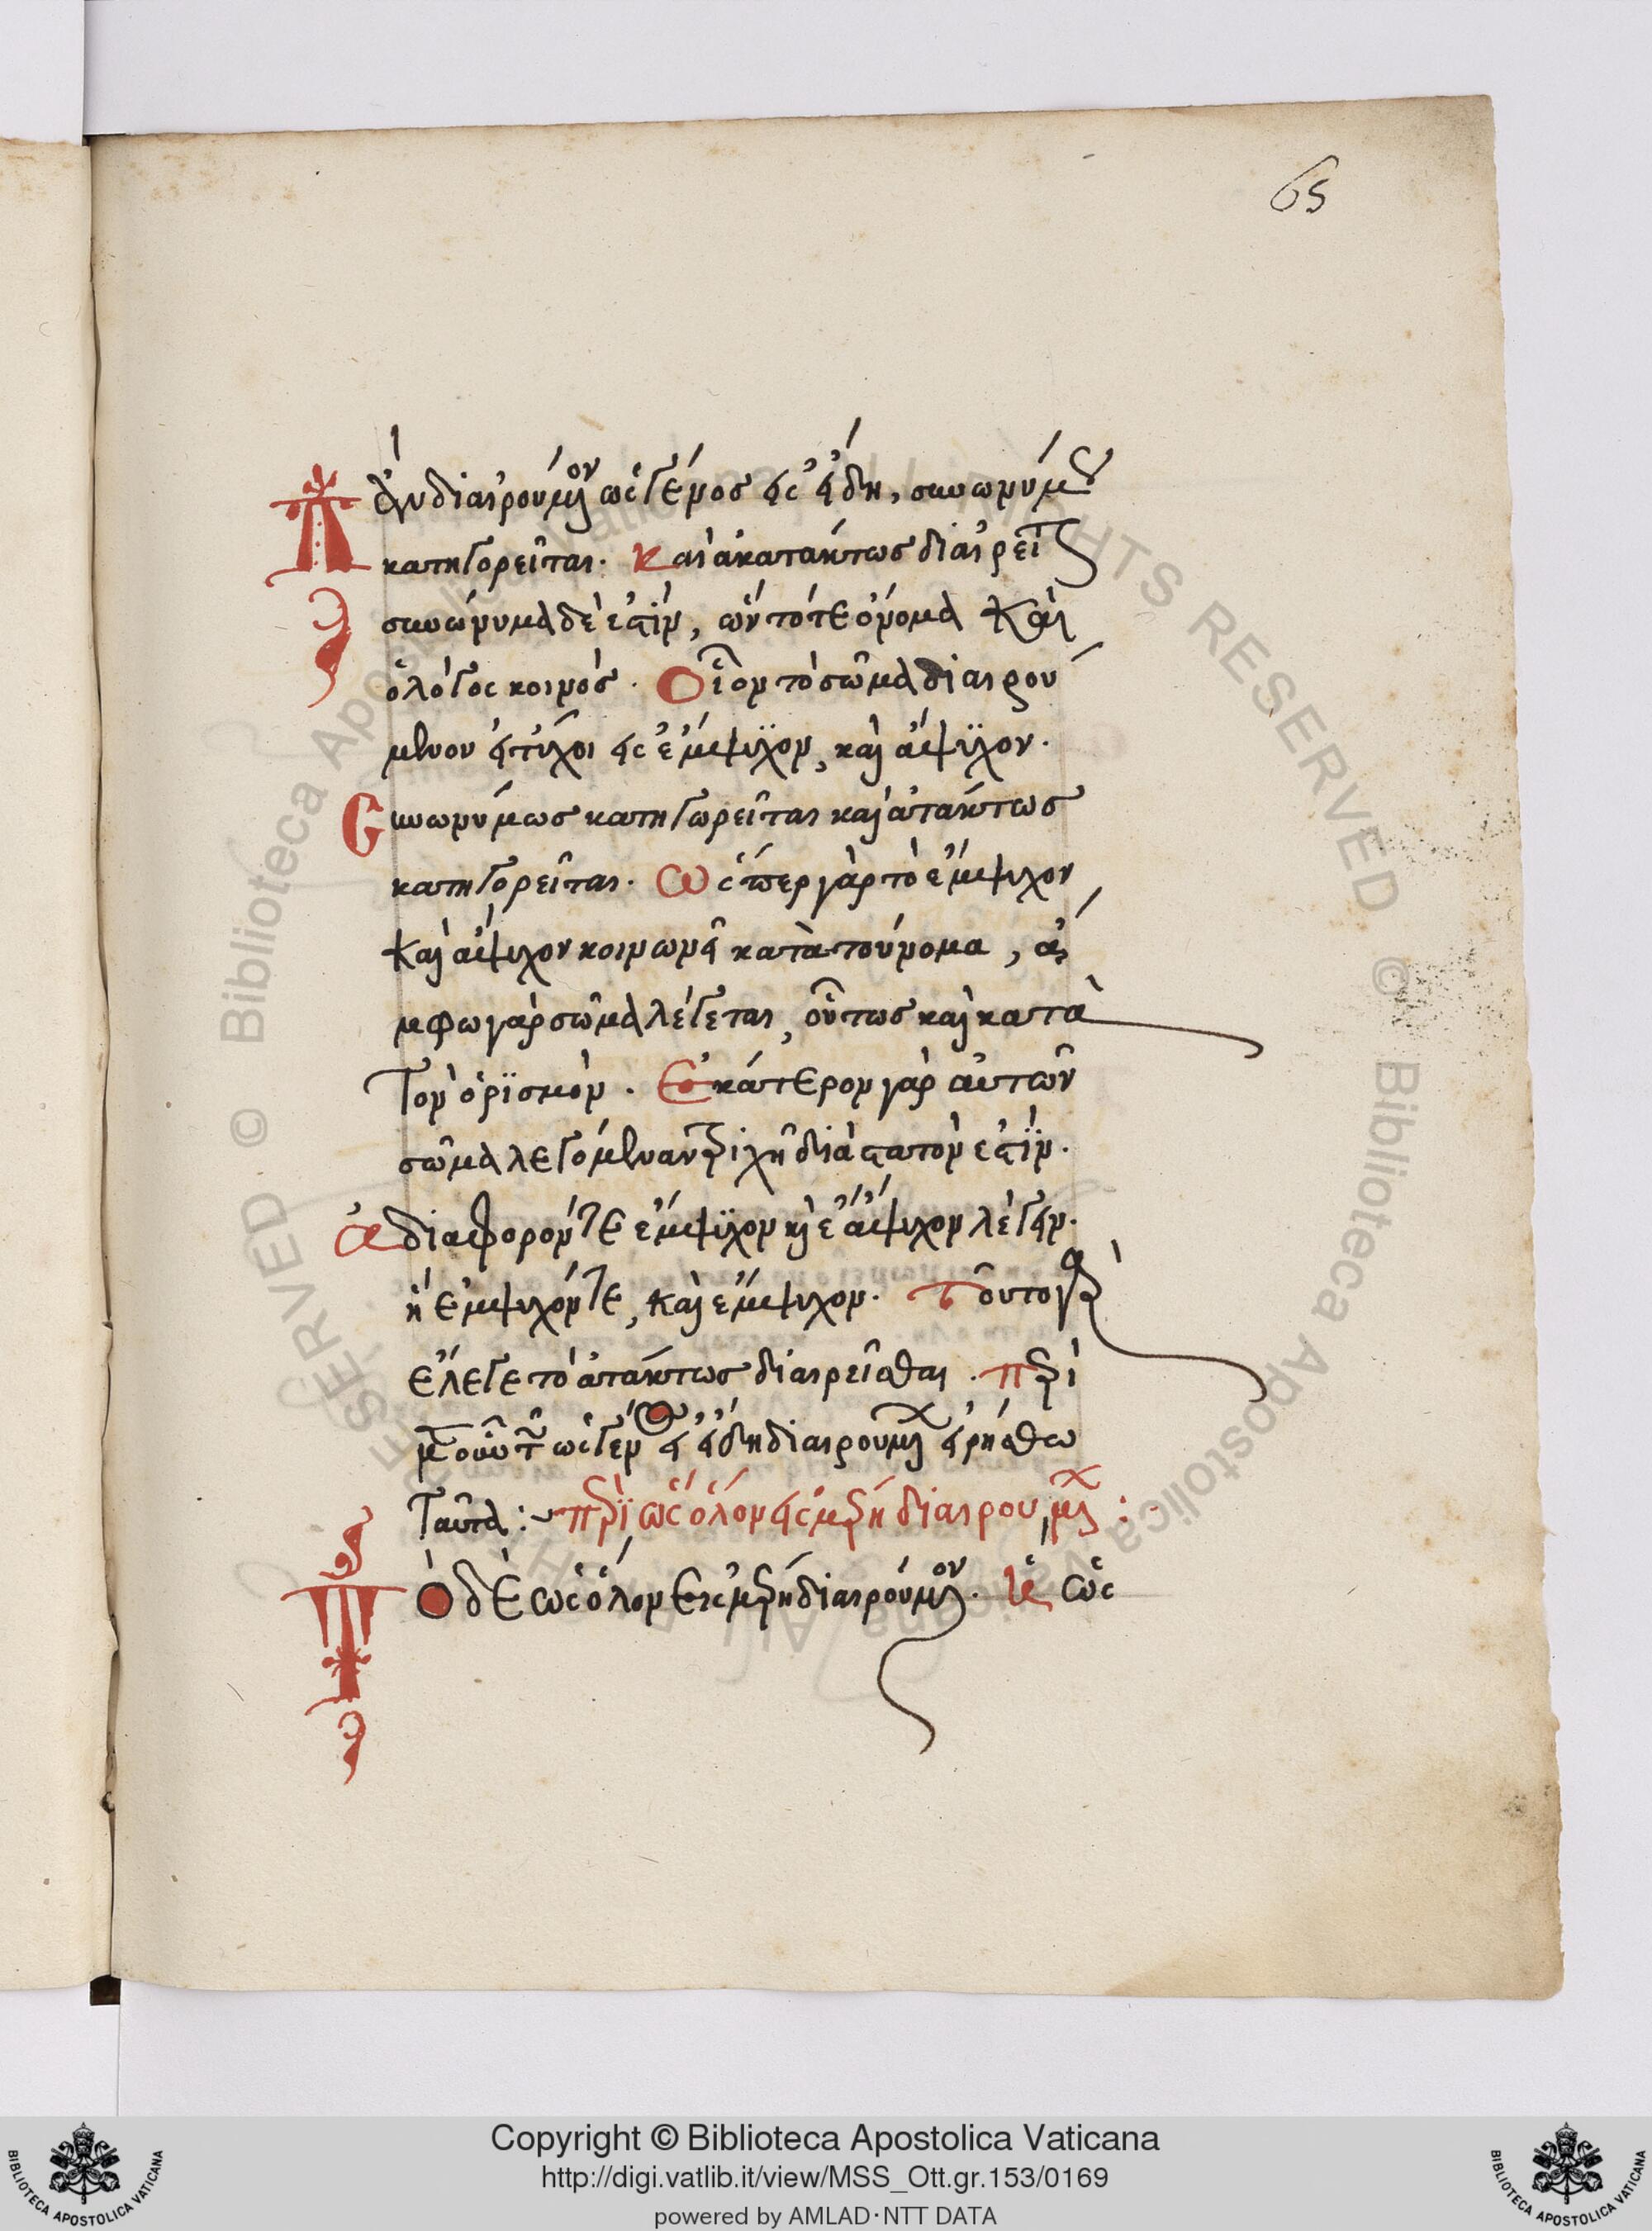 65
Τὸ μὲν διαιρούμενον ὡς γένος εἰς εἴδη, συνωνύμως
κατηγορεῖται. καὶ ἀκατάκτως διαιρεῖται
συνώνυμα δέ ἐστιν, ὧν τό τε ὄνομα καὶ
ὁ λόγος κοινός. Οἷον τὸ σῶμα διαιρού
μενον εἰ τύχοι εἰς ἔμψϋχον, καὶ ἄψϋχον.
Συνωνύμως κατηγωρεῖται καὶ ἀτάκτως
κατηγορεῖται. Ὥσπερ γὰρ τὸ ἔμψυχον
καὶ ἄψυχον κοινωνεῖ κατὰ τοὔνομα, ἄ
μφω γὰρ σῶμα λέγεται, οὕτως καὶ κατὰ
τὸν ὁρϊσμόν. Ἑκάτερον γὰρ αὐτῶν
σῶμα λεγόμενον τριχῆ διάστατόν ἐστϊν.
ἀδιάφορόν τε ἔμψϋχον καὶ ἄψυχον λέγειν.
ἢ ἔμψυχόν τε, καὶ ἔμψυχον. Τοῦτο γὰρ
ἔλεγε τὸ ἀτάκτως διαιρεῖσθαι. περὶ
μὲν οὖν τῶν ὡς γένος εἰς εἴδη διαιρουμένων εἰρήσθω
ταῦτα:- περὶ ὡς ὅλον εἰς μέρη διαιρουμένων:
Τὸ δὲ ὡς ὅλον εἰς μέρη διαιρούμενον. ἢ ὡς
Copyright © Biblioteca Apostolica Vaticana
http://digi.vatlib.it/view/MSS_Ott.gr.153/0169
powered by AMLAD·NTT DATA
BIBLIOTECA APOSTOLICA VATICANA
BIBLIOTECA APOSTOLICA VATICANA